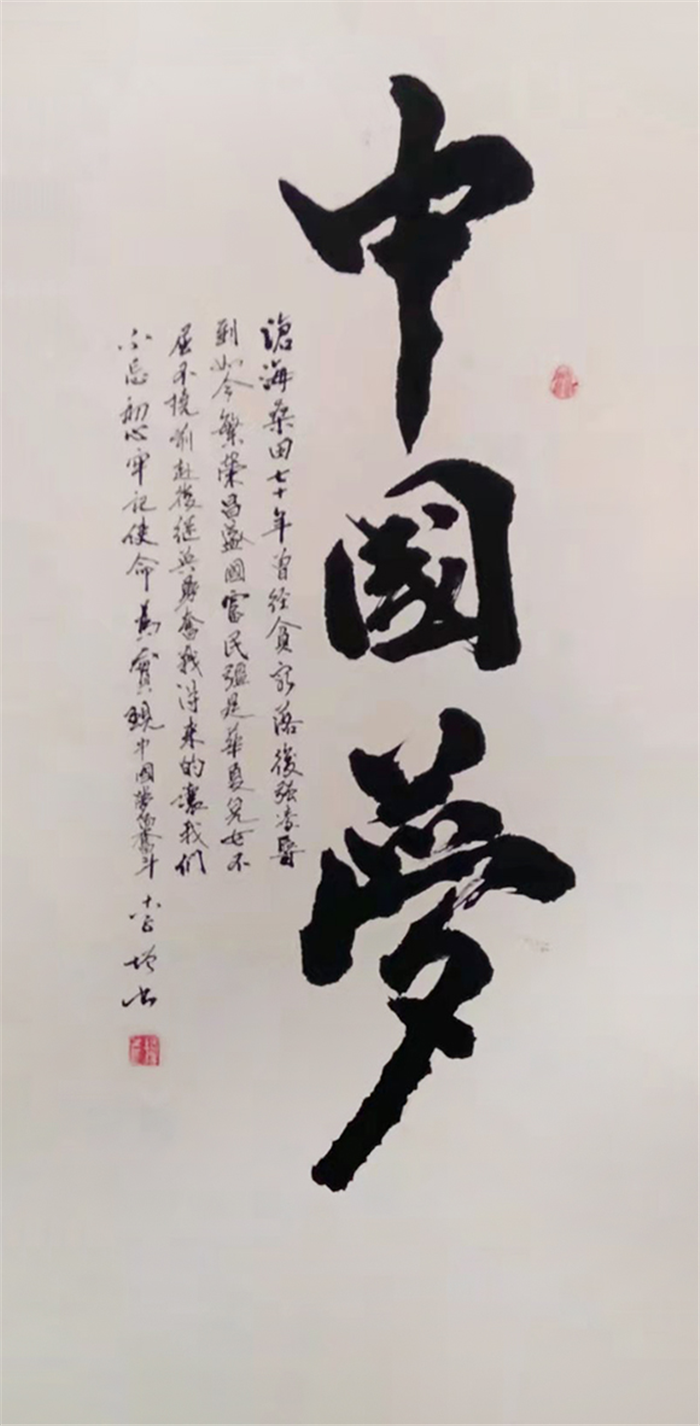 中國夢
滄海桑田七十年曾經貧窮落後強凌
到如今繁榮昌盛國富民強是華夏兒女不
屈不撓前赴後繼英勇奮戰得來的讓我們
不忘初心牢記使命為實現中國夢而奮斗